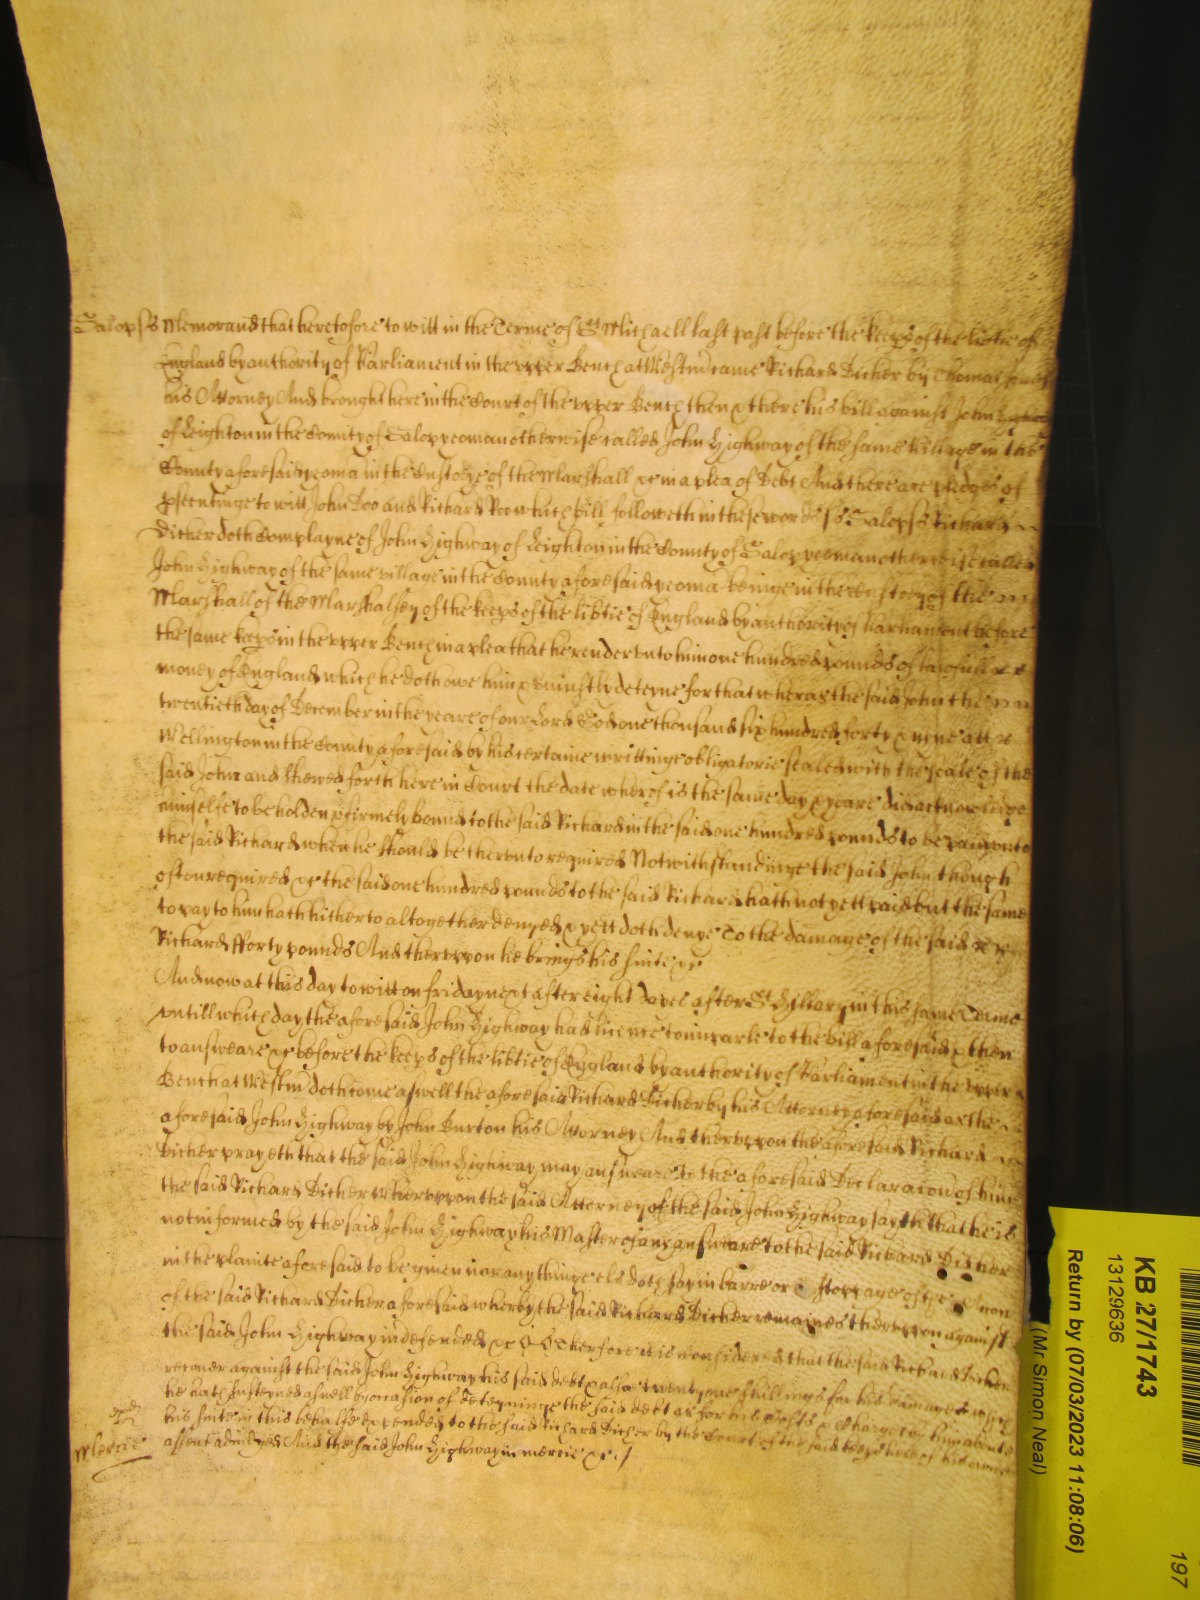 Salop ss Memorand that heretofore to witt in the Terme of St Michaell last past before the keeps of the libtie of
England by authority of Parliament in the upper Bench at Westm came Richard Dicher by Thomas Jones
his Attorney And brought here in the Court of the upper Bench then & there his bill against John Highway
of Leighton in the County of Salop yeoman otherwise called John Highway of the same village in the
County aforesaid yeoma in the Custodye of the Marshall &c in a plea of Debt And there are pledges of
psecutinge to witt John Doo and Richard Roo which bill followeth in these words ss Salop ss Richard
Dicher doth Complayne of John Highway of Leighton in the County of Salop yeoman otherwise called
John Highway of the same village in the County aforesaid yeoma beinge in the Custody of the
Marshall of the Marshalsey of the keeps of the libtie of England by authority of Parliament before
the same keeps in the upper Bench in a plea that he render unto him one hundred pounds of lawfull
money of England which he doth owe him & uniustly deteyne for that wheras the said John the
twentieth day of December in the yeare of our Lord God one thousand six hundred forty & nyne att
Wellington in the County aforesaid by his certaine writtinge obligatorie sealed with the seale of the
said John and shewed forth here in Court the date wherof is the same day & yeare did acknowledge
himselfe to be holden & firmely bound to the said Richard in the said one hundred pounds to be paid unto
the said Richard when he should be therunto required Notwithstandinge the said John though
often required &c the said one hundred pounds to the said Richard hath not yett paid but the same
to pay to him hath hitherto altogether denyed & yett doth denye To the damage of the said
Richard fforty pounds And therupon he brings his suite &c
And now at this day to witt on friday next after eight dayes after St Hillary in this same Terme
untill which day the aforesaid John Highway had licence to imparle to the bill aforesaid & then
to answeare &c before the keeps of the libtie of England by authority of Parliament in the upper
Bench at Westm doth come aswell the aforesaid Richard Dicher by his Attorney aforesaid as the
aforesaid John Highway by John Burton his Attorney And therupon the aforesaid Richard
Dicher prayeth that the said John Highway may answeare to the aforesaid Declaracion of him
the said Richard Dicher Wherupon the said Attorney of the said John Highway sayth that he is
not informed by the said John Highway his Master of any answeare to the said Richard Dicher
in the plainte aforesaid to be given nor any thinge els doth say in barre or Stoppage of the Accon
of the said Richard Dicher aforesaid wherby the said Richard Dicher remaines therupon against
the said John Highway indefended &c Therfore it is considered that the said Richard Dicher
recover against the said John Highway his said debt & alsoe twenty one shillings for his damages which
he hath susteyned aswell by occasion of deteyninge the said debt as for his Costs & Charges by him about
his suite in this behalfe expended to the said Richard Dicher by the Court of the said keeps here of his owne
assent adiudged And the said John Highway in mercie &c
Mercie
KB 27/1743
13129636
Return by (07/03/2023 11:08:06)
(Mr Simon Neal)
197